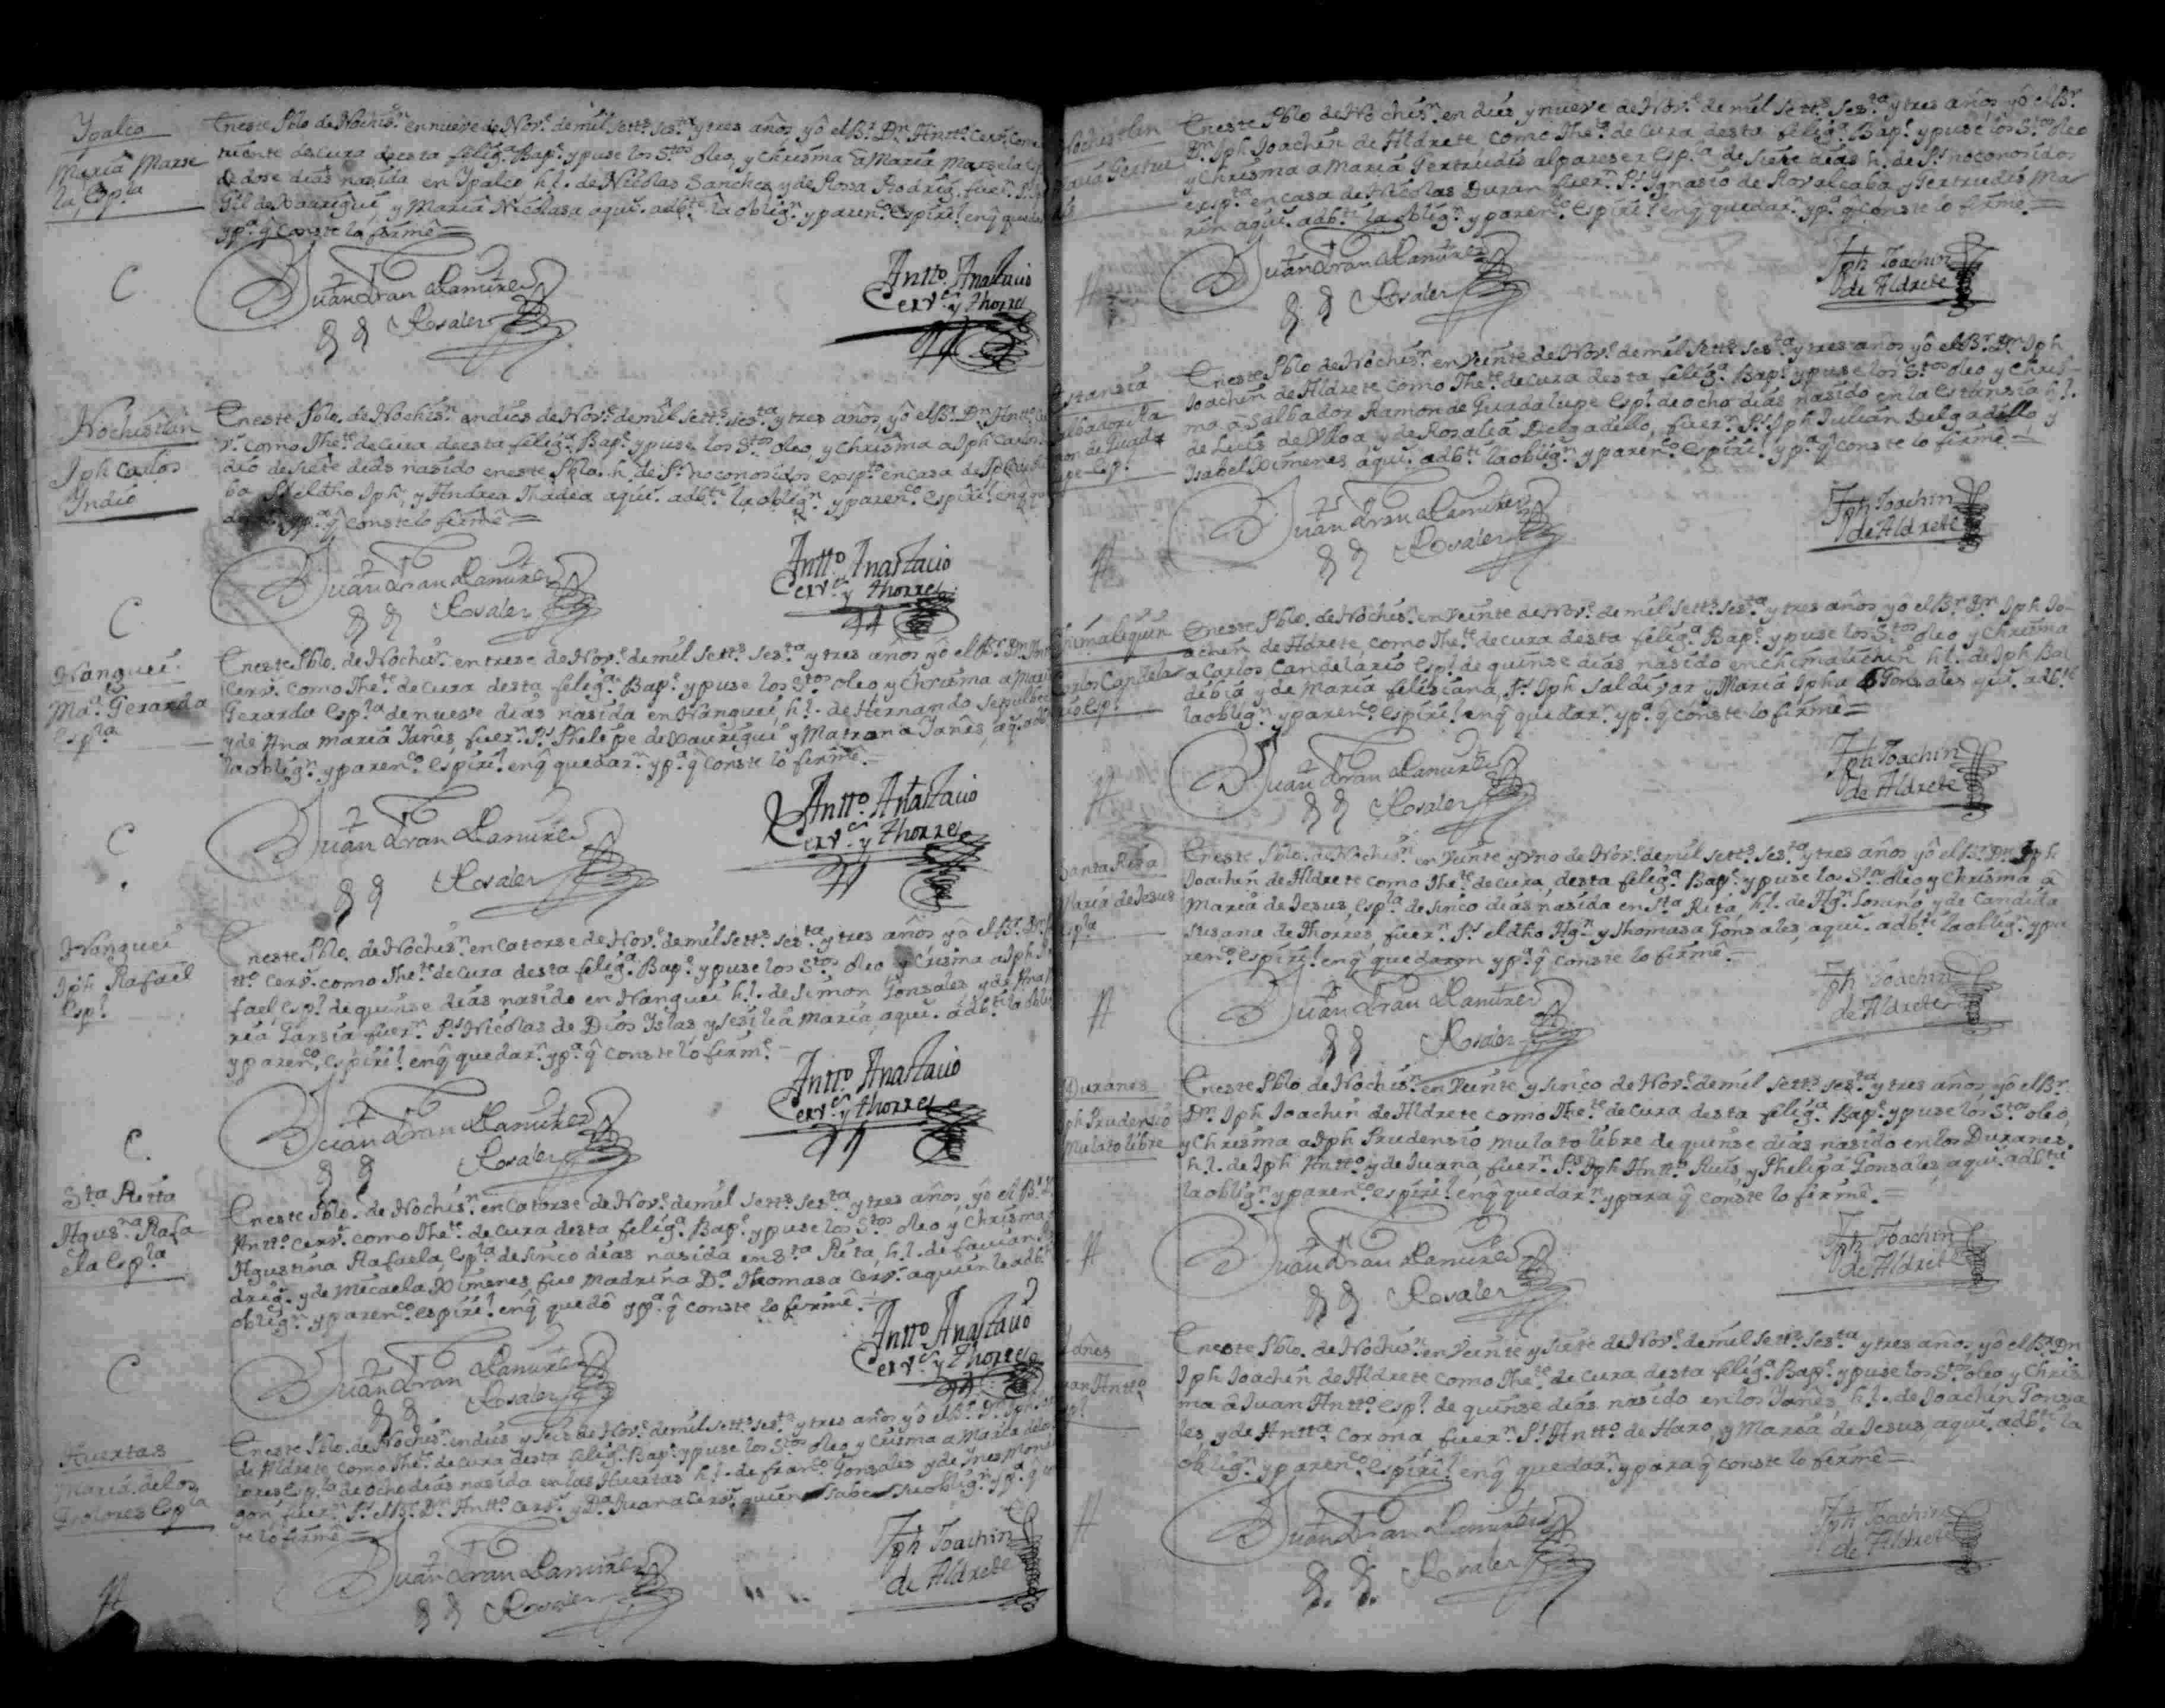 Ypalco
Maria Marse
la, Esp.la
En este Pblo de Nochis.n en nueve de Nov.e de mil sett.s ses.ta y tres años yô el B.r D.n Antt.o Cerv. Como
tniente de Cura desta felig.a Bap.e y puse los S.tos Oleo, y Chrisma â Maria Marsela
de dose dias nasida en Ypalco h.l. de Nicolas Sanches y de Rossa Rodrig. fuer.n P.s
Gil de Xauregui, y Maria Nicolasa aqui. adb.tí la oblig.n y paren.co espiri.l enq̂ queda
y p.a q̂ Conste lo firmê
C
Juan Fran Ramires
Rosales
Antt.o Anastacio
Cerv.es y thorres
Nochistlan
Iph Carlos
Yndio
En este Pblo. de Nochis.n en dies de Nov.e de mil sett.s ses.ta y tres años yô el B.r D.n Antt.o
v.s como The.te de Cura desta felig.a Bap.e y puse los S.tos Oleo, y Chrisma a Iph Carlos
dio de siete dias nasido en este Pblo. h. de P.s no conosidos exsp.to en casa de Iph
ba P.s el dho Iph, y Andrea Thadea aqui. adb.tí la oblig.n y paren.co espiri.l enq̂
y p.a q̂ conste lo firmê
C
Juan Fran Ramires
Rosales
Antt.o Anastacio
Cerv.es y thorres
Nangueí
Ma.a Gerarda
Esp.la
En este Pblo. de Nochis.n en trese de Nov.e de mil sett.s ses.ta y tres años yô el B.r D.n
Cerv. como The.te de Cura desta felig.a Bap.e y puse los S.tos Oleo y Chrisma a Maria
Gerarda Esp.la de nueve dias nasida en Nanguei, h.l. de Hernando Sepulbeda
y de Ana Maria Yanes, fuer.n P.s Phelipe de Xauregui y Matrana Yanes, aq. adb
la oblig.n y paren.co espiri.l enq̂ quedar.n y p.a q̂ conste lo firmê
C
Juan Fran Ramires
Rosales
Antt.o Anastacio
Cerv.es y thorres
Nangueí
Iph Rafael
Esp.l
En este Pblo. de Nochis.n en Catorse de Nov.e de mil sett.s ses.ta y tres años yô el B.r D.n
tt.o Cerv. como The.te de Cura desta felig.a Bap.e y puse los S.tos Oleo y Crisma a Iph
fael, Esp.l de quinse dias nasido en Nangueí h.l. de Simon Gonsales y de Ana
ria Garsia fuer.n P.s Nicolas de Dios Yslas, y Sesilia Maria, aqui. adb.tí la oblig
y paren.co, espiri.l enq̂ quedar.n y p.a q̂ conste lo firm.e
C.
Juan Fran Ramires
Rosales
Antt.o Anastacio
Cerv.es y thorres
S.ta Ritta
Agus.na Rafa
ela Esp.la
En este Pblo. de Nochis.n en Catorse de Nov.e de mil sett.s ses.ta y tres años, yô el B.r
Antt.o Cerv. como The.te de Cura desta felig.a Bap.e y puse los S.tos Oleo y Chrisma
Agustina Rafaela, Esp.la de sinco dias nasida en S.ta Rita, h.l. de favian
drig. y de Micaela Ximenes fue Madrina D.a Thomasa Cerv. a quien le adb
oblig.n y paren.co espiri.l enq̂ quedô y p.a q̂ conste lo firmê
C
Juan Fran Ramires
Rosales
Antt.o Anastacio
Cerv.es y thorres
Huertas
Maria de los
Dolores Esp.la
En este Pblo. de Nochis.n en dies y seis de Nov.e de mil sett.s ses.ta y tres años yô el B.r D.n Iph
de Aldrete como The.te de Cura desta felig.a Bap.e y puse los S.tos Oleo y Crisma a Maria delos
lores Esp.la de ocho dias nasida en las Huertas h.l. de fran.co Gonsales y de Ynes
gon, fuer.n P.s el B.r D.n Antt.o Cerv. y D.a Juana Cerv. quien sabe su oblig.n y p.a q̂
te lo firmê
A
Juan Fran Ramires
Rosales
Iph Ioachin
de Aldrete
Nochistlan
Maria Gertru
dis
En este Pblo de Nochis.n en dies y nueve de Nov.e de mil sett.s ses.ta y tres años, yô el B.r
D.n Iph Ioachin de Aldrete, como The.te de Cura desta felig.a Bap.e y puse los S.tos Oleo
y Chrisma a Maria Gertrudis al pareser Esp.la de siete dias h. de P.s no conosidos
exsp.ta en casa de Nicolas Duran fuer.n P.s Ygnasio de Rovalcaba y Gertrudis Ma
rin aqui. adb.tí la oblig.n y paren.co espiri.l enq̂ quedar.n y p.a q̂ conste lo firmê
A
Juan Fran Ramires
Rosales
Iph Ioachin
de Aldrete
Estansia
Salbador Ra
mon de Guada
lupe Esp.l
En este Pblo de Nochis.n en Veinte de Nov.e de mil sett.s ses.ta y tres años yô el B.r D.n Iph
Ioachin de Aldrete como The.te de Cura desta felig.a Bap.e y puse los S.tos Oleo y Chris-
ma â Salbador Ramon de Guadalupe Esp.l de ocho dias nasido en la Estansia h.l.
de Luis de Ulloa y de Rosalia Delgadillo, fuer.n P.s Iph Iulian Delgadillo, y
Isabel Ximenes, aqui. adb.tí la oblig.n y paren.co espiri.l y p.a q̂ conste lo firmê
A
Juan Fran Ramires
Rosales
Iph Ioachin
de Aldrete
Chimaliquin
Carlos Candela
rio Esp.l
En este Pblo. de Nochis.n en Veinte de Nov.e de mil sett.s ses.ta y tres años, yô el B.r D.n Iph Io-
achin de Aldrete, como The.te de Cura desta felig.a Bap.e y puse los S.tos Oleo y Chrisma
a Carlos Candelario Esp.l de quinse dias nasido en Chimalichin h.l. de Iph Bal
dibia y de Maria felisiana, P.s Iph Saldivar y Maria Ipha Gonsales qui. adb.tí
la oblig.n y paren.co espiri.l enq̂ quedar.n y p.a q̂ conste lo firmê
A
Juan Fran Ramires
Rosales
Iph Ioachin
de Aldrete
Santa Rita
Maria de Jesus
Esp.la
En este Pblo. de Nochis.n en Veinte y Uno de Nov.e de mil sett.s ses.ta y tres años yô el B.r D.n Iph
Ioachin de Aldrete como The.te de Cura desta felig.a Bap.e y puse los S.tos Oleo y Chrisma â
Maria de Jesus, Esp.la de sinco dias nasida en S.ta Rita, h.l. de Ag.n Losano y de Candida
Susana de Thorres, fuer.n P.s el dho Ag.n y Thomasa Gonsales, aqui. adb.tí la oblig.n y pa
ren.co espiri.l enq̂ quedaron y p.a q̂ conste lo firmê
A
Juan Fran Ramires
Rosales
Iph Ioachin
de Aldrete
Duranes
Iph Prudensio
Mulato libre
En este Pblo de Nochis.n en Veinte y sinco de Nov.e de mil sett.s ses.ta y tres años, yô el B.r
D.n Iph Ioachin de Aldrete como The.te de Cura desta felig.a Bap.e y puse los S.tos Oleo,
y Chrisma a Iph Prudensio mulato libre de quinse dias nasido en los Duranes.
h.l. de Iph Antt.o y de Juana, fuer.n P.s Iph Antt.o Ruis, y Phelipa Gonsales, aqui. adb.tí
la oblig.n y paren.co espiri.l enq̂ quedar.n y para q̂ conste lo firmê
A
Juan Fran Ramires
Rosales
Iph Ioachin
de Aldrete
Yanes
Juan Antt.o
Esp.l
En este Pblo. de Nochis.n en Veinte y siete de Nov.e de mil sett.s ses.ta y tres años, yô el B.r D.n
Iph Ioachin de Aldrete como The.te de Cura desta felig.a Bap.e y puse los S.tos Oleo y Chris
ma â Juan Antt.o Esp.l de quinse dias nasido en los Yanes, h.l. de Ioachin Gonsa
les, y de Antt.a Corona, fuer.n P.s Antt.o de Haro, y Maria de Jesus, aqui. adb.tí la
oblig.n y paren.co espiri.l enq̂ quedar.n y para q̂ conste lo firmê
A
Juan Fran Ramires
Rosales
Iph Ioachin
de Aldrete